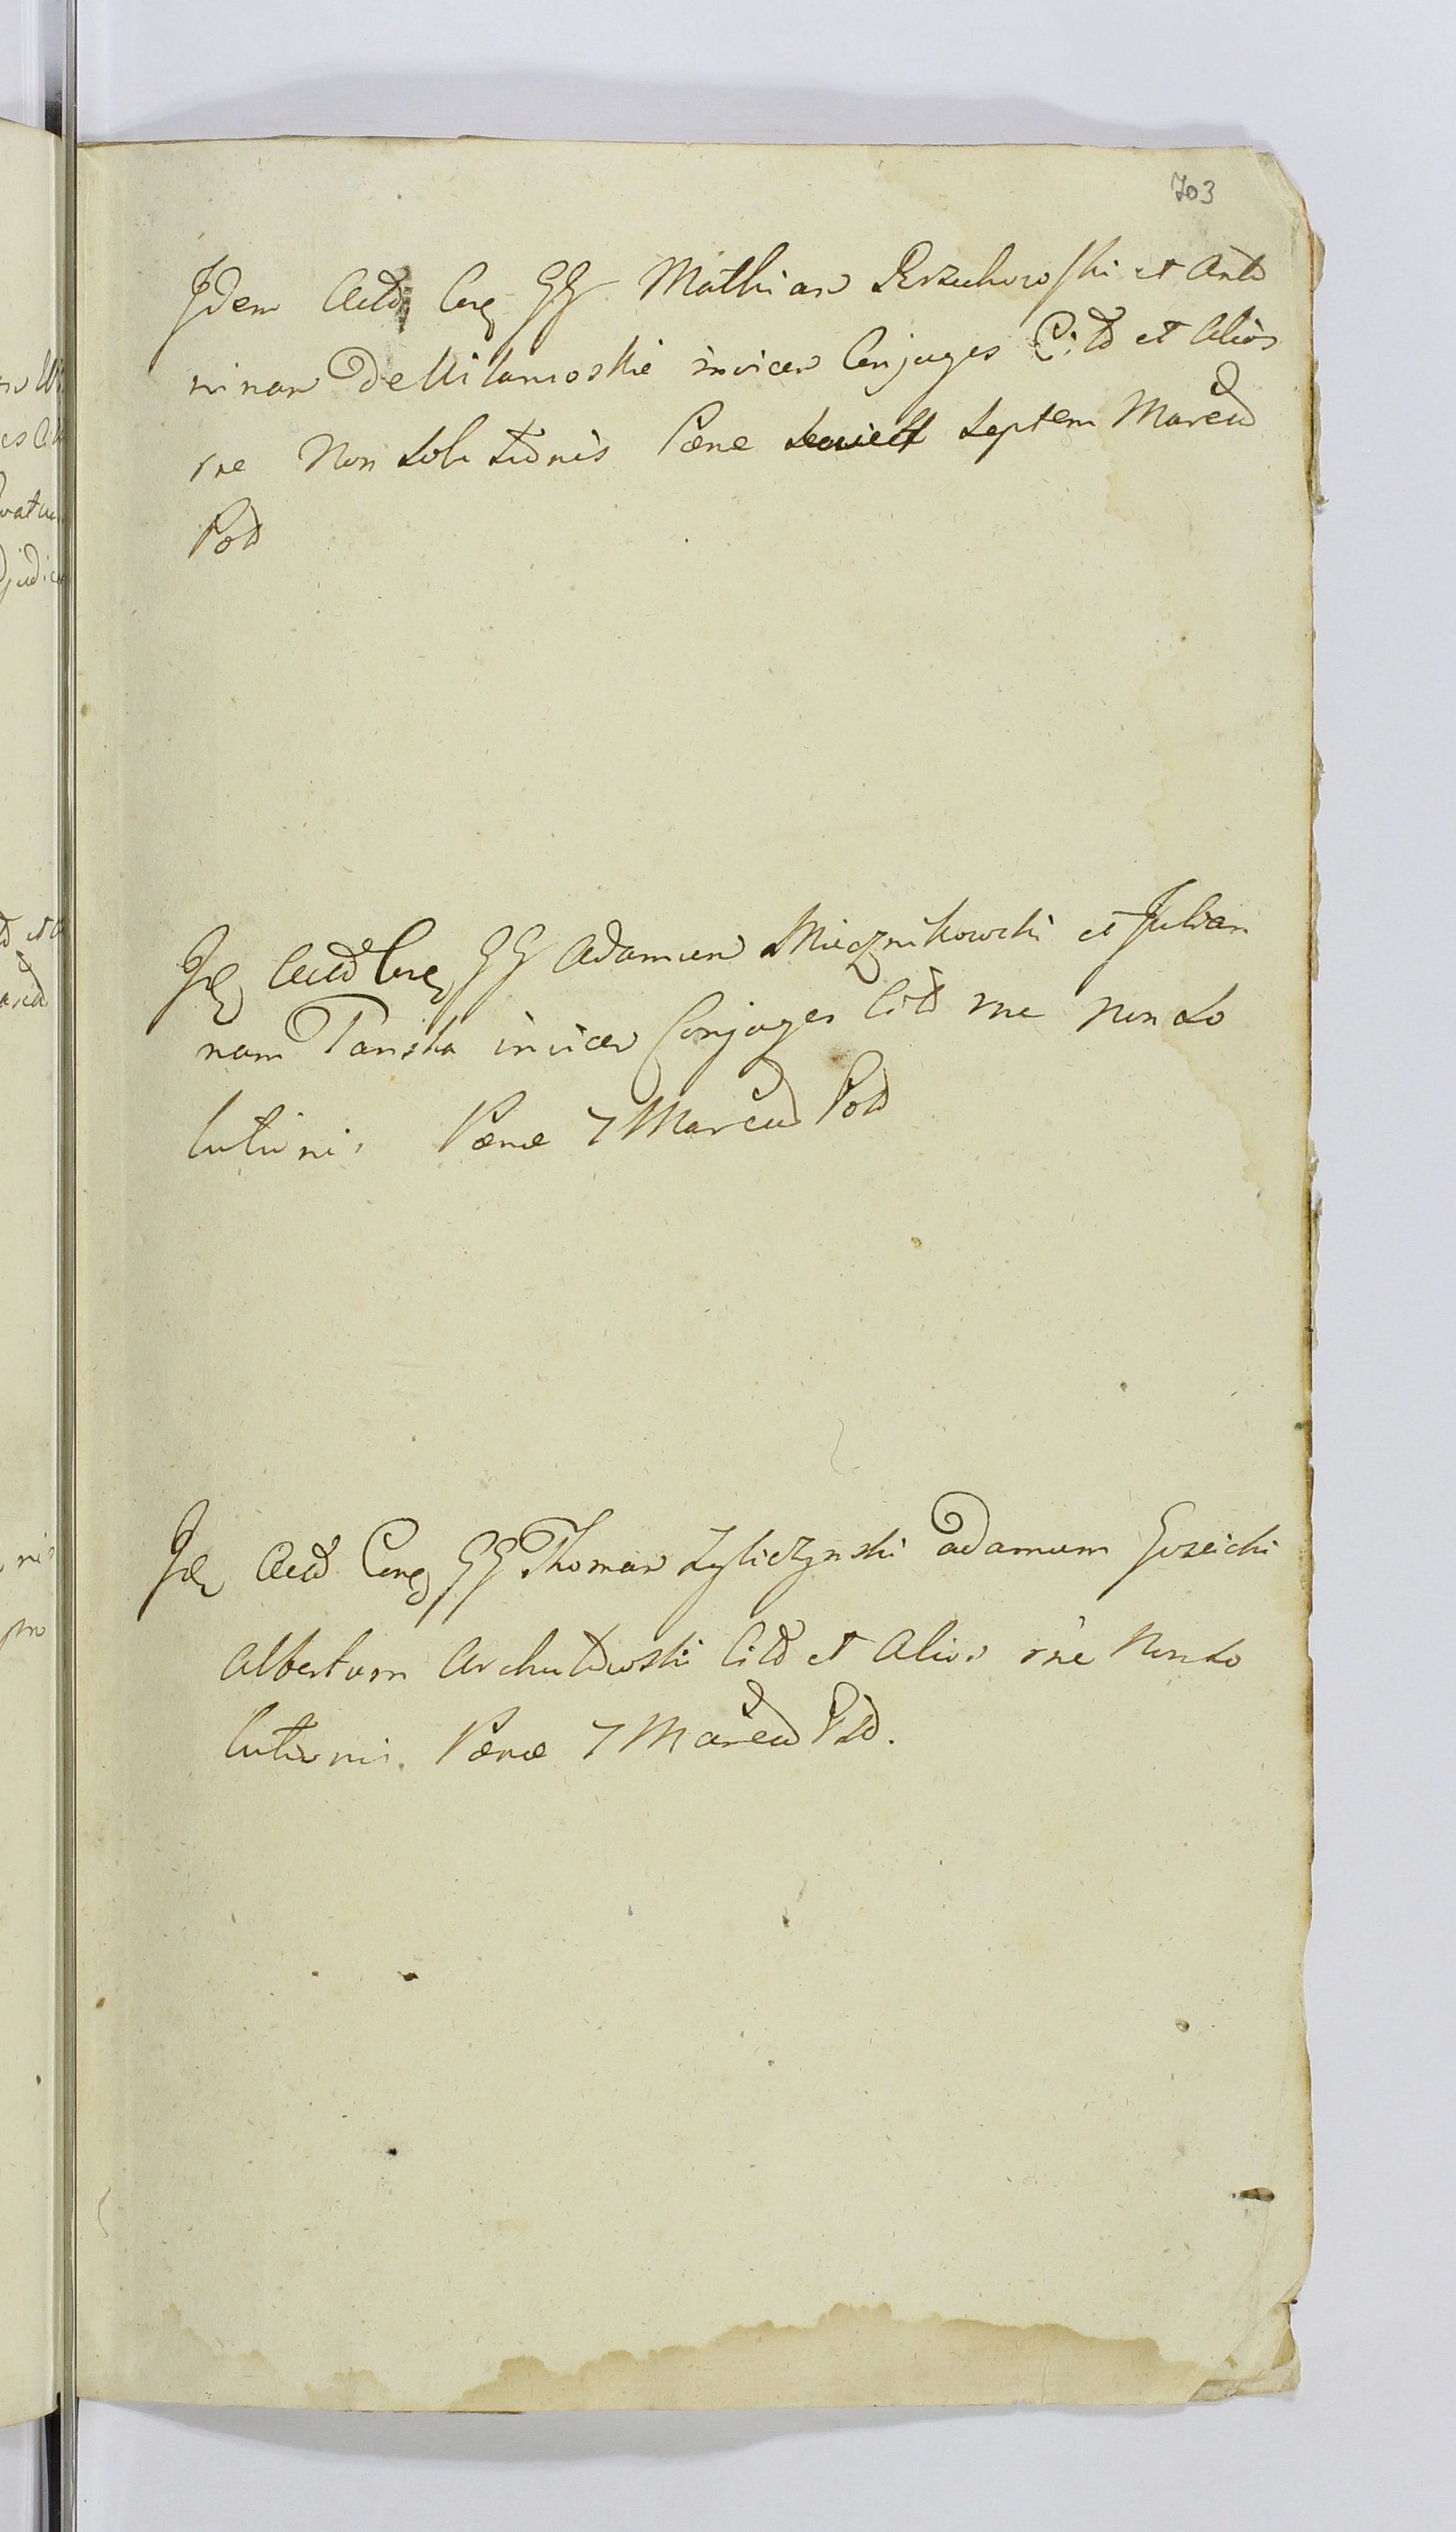 703
Idem Actd Corg GG Mathian Krzuchowski et Anto
ninan De Milanoskie invicen Conjuges Citd et Alios
rne Non Solutionis Pæne septem Marcd
Potd
Id Actd Corg GG Adamum Miecznikowski et Julian
nam Tanska invicen Conjuges Citd rne Non So
lutionis Pænæ 7 Marcd Potd
Id Actd Corg GG Thoman Zyliczynski Adamum Gosicki
Albertum Archutowski Citd et Alios rne Non So
lutionis. Pænæ 7 Marcd Ptd.